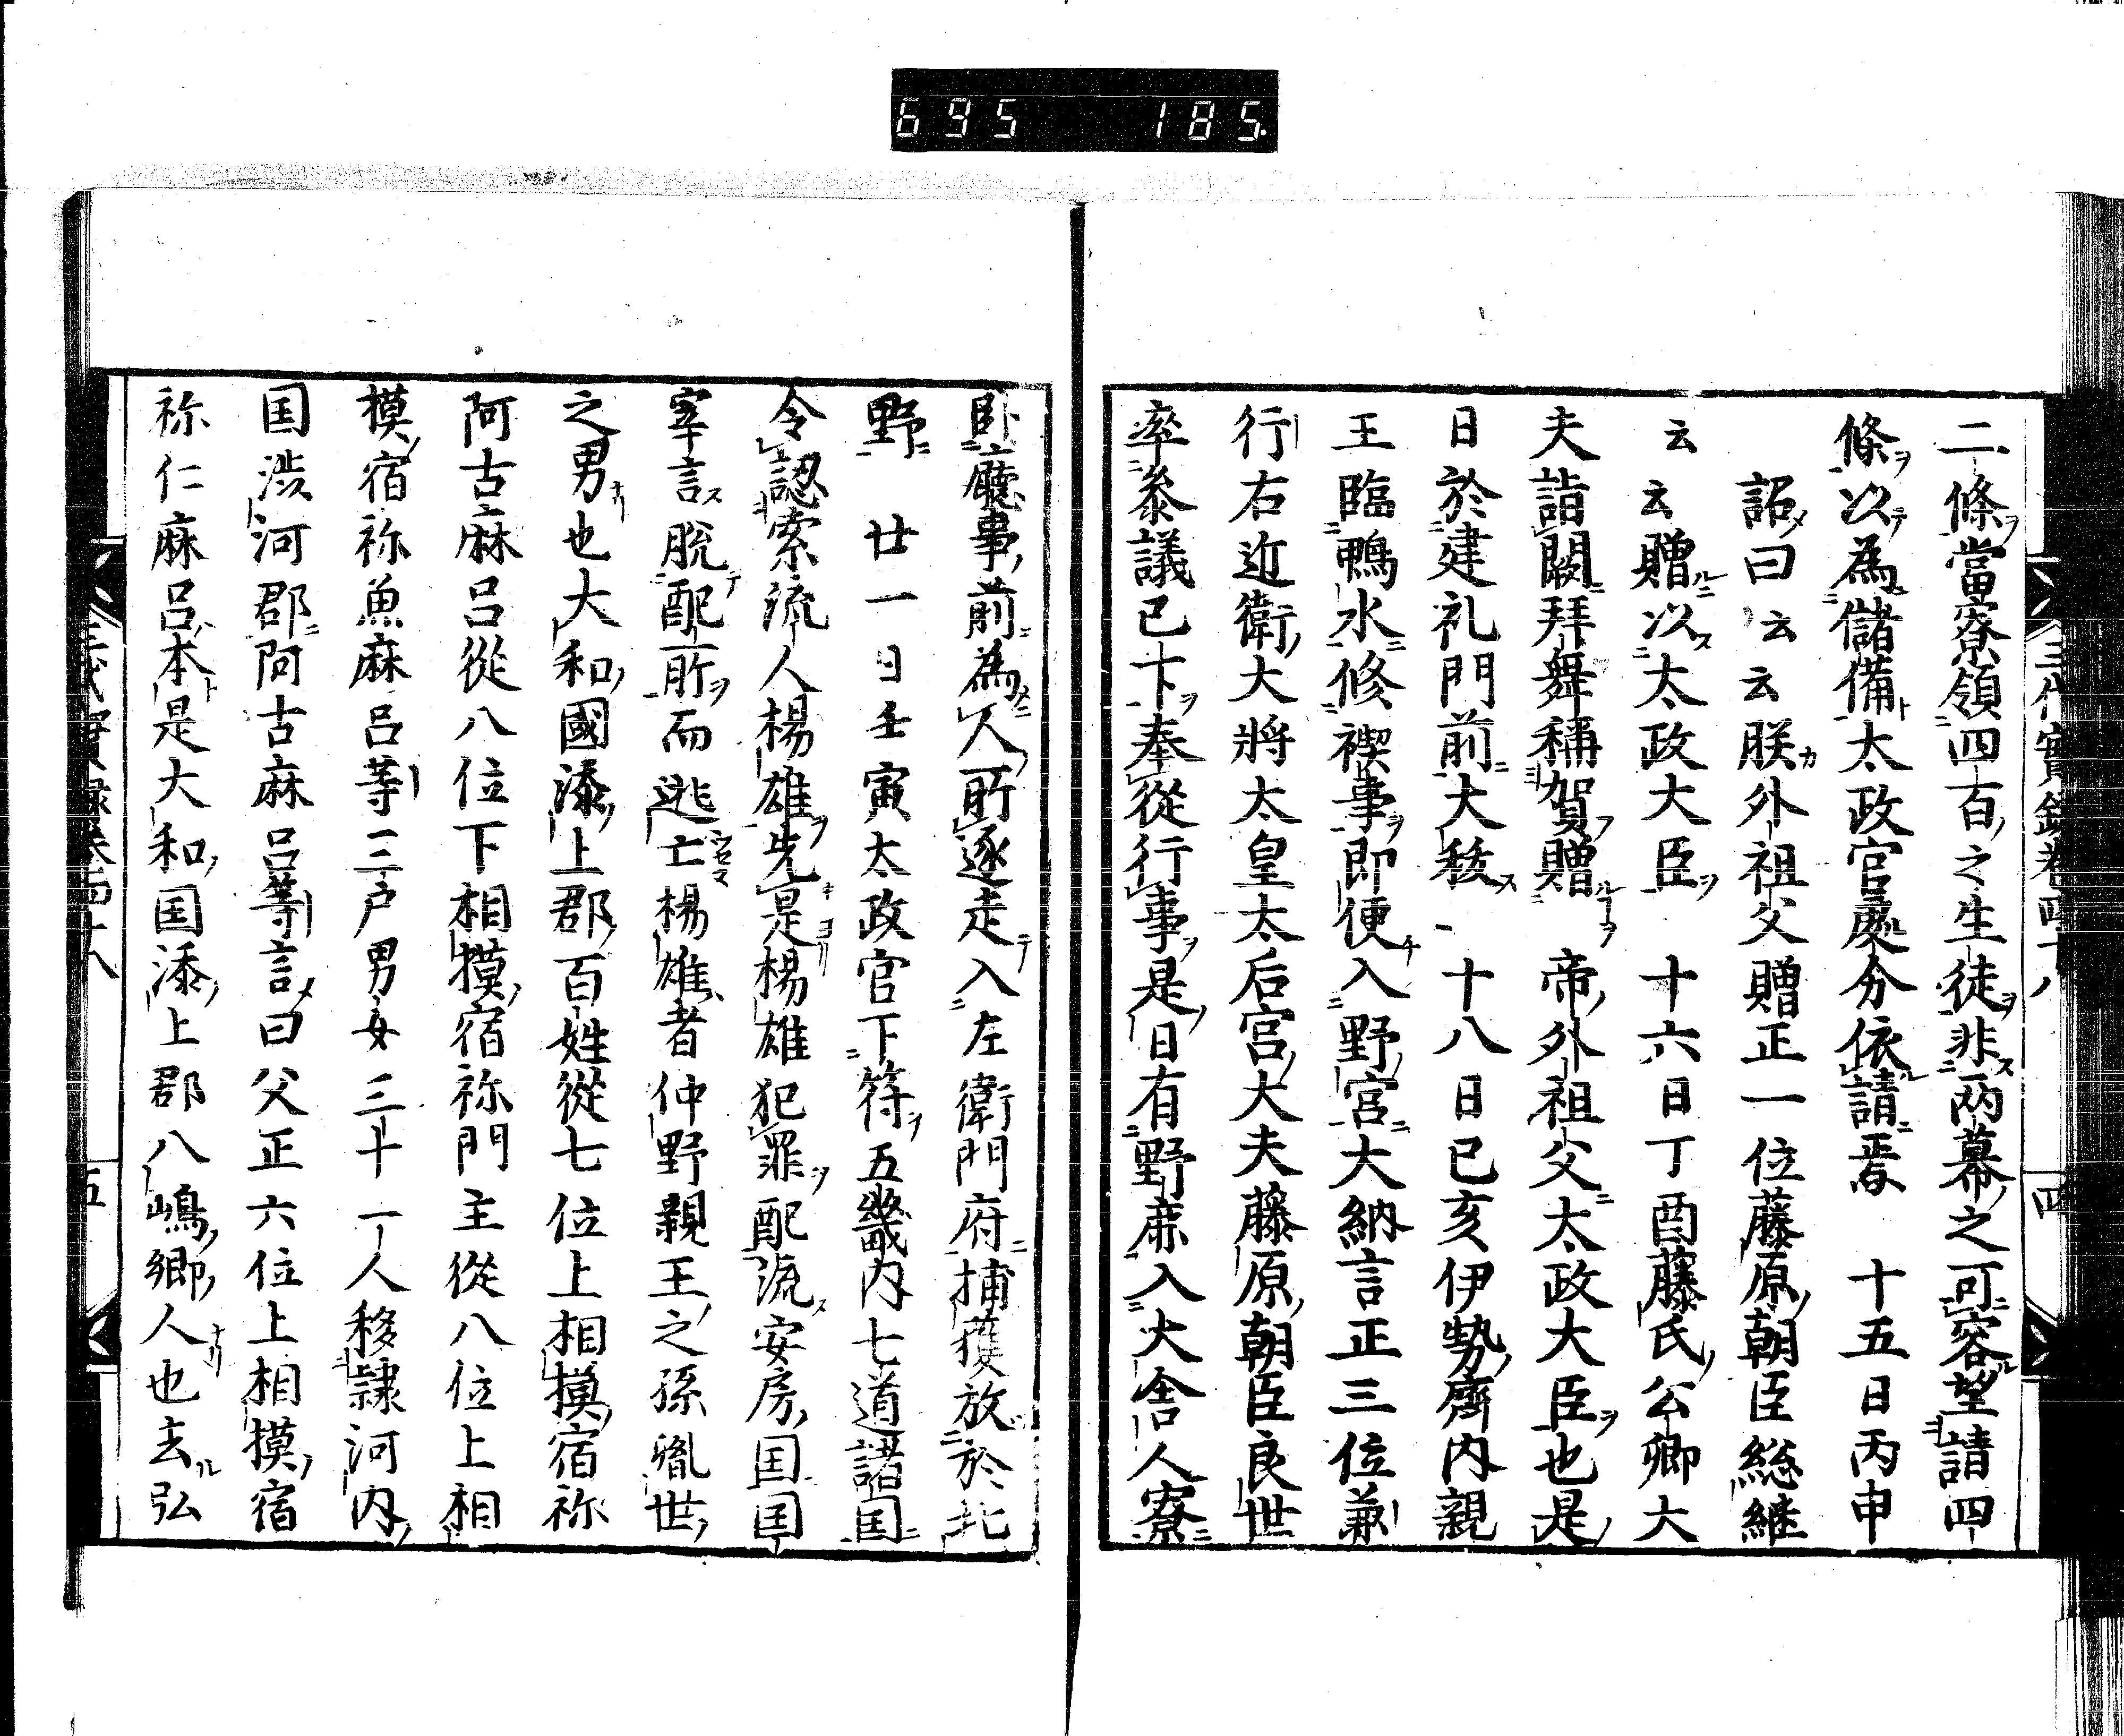 695 185.
三代實録卷四十八
四
二條當寮領四百之生徒非兩幕之可容望請四
條以為儲備太政官處分依請焉　十五日丙申
詔曰云云朕外祖父贈正一位藤原朝臣総継
云云贈以太政大臣　十六日丁酉藤氏公卿大
夫詣闕拜舞稱賀贈　帝外祖父太政大臣也是
日於建礼門前大秡　十八日已亥伊勢齊内親
王臨鴨水修禊事即便入野宮大納言正三位兼
行右近衛大將太皇太后宮大夫藤原朝臣良世
率參議已下奉從行事是日有野麁入大舎人寮
臥廳事前為人所逐走入左衛門府捕獲放於北
野　廿一日壬寅太政官下符五畿内七道諸国
令認索流人楊雄先是楊雄犯罪配流安房国国
宰言脱配所而逃亡楊雄者仲野親王之孫胤世
之男也大和國添上郡百姓從七位上相摸宿祢
阿古麻呂從八位下相摸宿祢門主從八位上相
摸宿祢魚麻呂等三戸男女三十一人移隷河内
国渋河郡阿古麻呂等言曰父正六位上相摸宿
祢仁麻呂本是大和国添上郡八嶋郷人也去弘
三代實録卷四十八
五